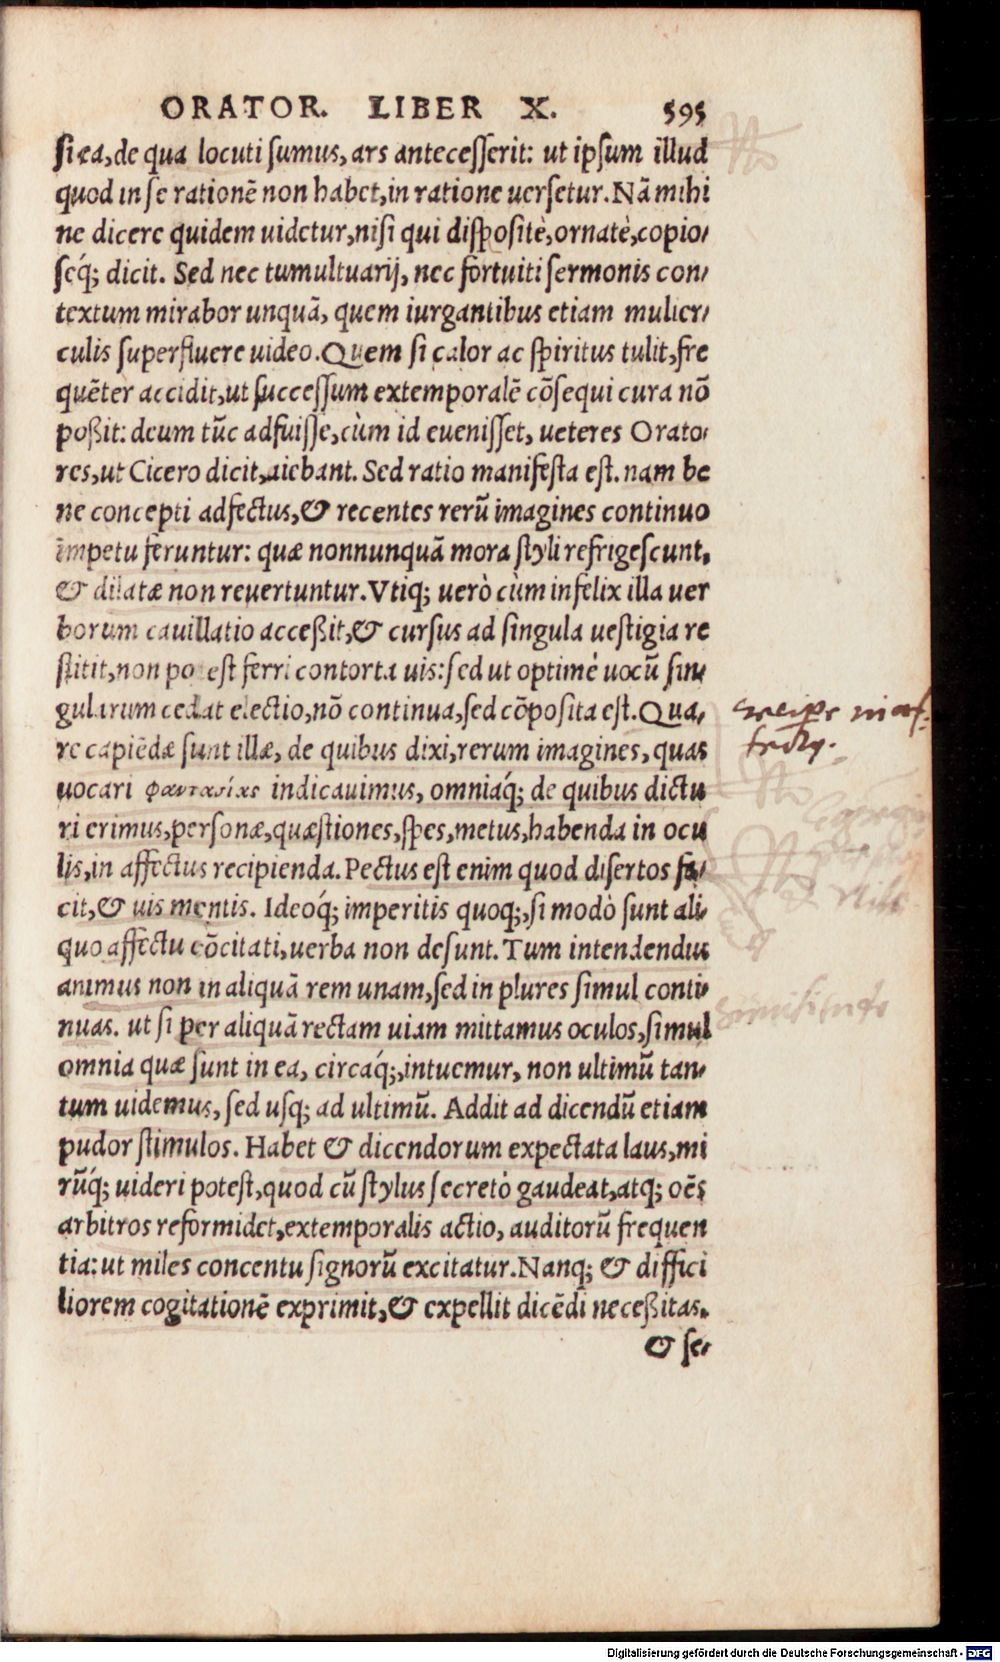 ORATOR. LIBER X. 595
si ea, de qua locuti sumus, ars antecesserit: ut ipsum illud
quod in se rationē non habet, in ratione uersetur. Nā mihi
ne dicere quidem uidetur, nisi qui dispositè, ornatè, copio-
seq́; dicit. Sed nec tumultuarij, nec fortuiti sermonis con-
textum mirabor unquā, quem iurgantibus etiam mulier-
culis superfluere uideo. Quem si calor ac spiritus tulit, fre
quēter accidit, ut successum extemporalē cōsequi cura nō
poßit: deum tūc adfuisse, cùm id euenisset, ueteres Orato-
res, ut Cicero dicit, aiebant. Sed ratio manifesta est. nam be
ne concepti adfectus, & recentes rerū imagines continuo
īmpetu feruntur: quæ nonnunquā mora styli refrigescunt,
& dilatæ non reuertuntur. Vtiq; uerò cùm infelix illa uer
borum cauillatio acceßit, & cursus ad singula uestigia re
stitit, non potest ferri contorta uis: sed ut optimè uocū sin-
gularum cedat electio, nō continua, sed cōposita est. Qua-
re capiēdæ sunt illæ, de quibus dixi, rerum imagines, quas
uocari φαντασίας indicauimus, omniaq́; de quibus dictu
ri erimus, personæ, quæstiones, spes, metus, habenda in ocu
lis, in affectus recipienda. Pectus est enim quod disertos fa-
cit, & uis mentis. Ideoq́; imperitis quoq;, si modò sunt ali-
quo affectu cōcitati, uerba non desunt. Tum intendendus
animus non in aliquā rem unam, sed in plures simul conti-
nuas. ut si per aliquā rectam uiam mittamus oculos, simul
omnia quæ sunt in ea, circaq́;, intuemur, non ultimū tan-
tum uidemus, sed usq; ad ultimū. Addit ad dicendū etiam
pudor stimulos. Habet & dicendorum expectata laus, mi
rūq́; uideri potest, quod cū stylus secretò gaudeat, atq; oēs
arbitros reformidet, extemporalis actio, auditorū frequen
tia: ut miles concentu signorū excitatur. Nanq; & diffici
liorem cogitationē exprimit, & expellit dicēdi neceßitas.
& se-
Digitalisierung gefördert durch die Deutsche Forschungsgemeinschaft - DFG